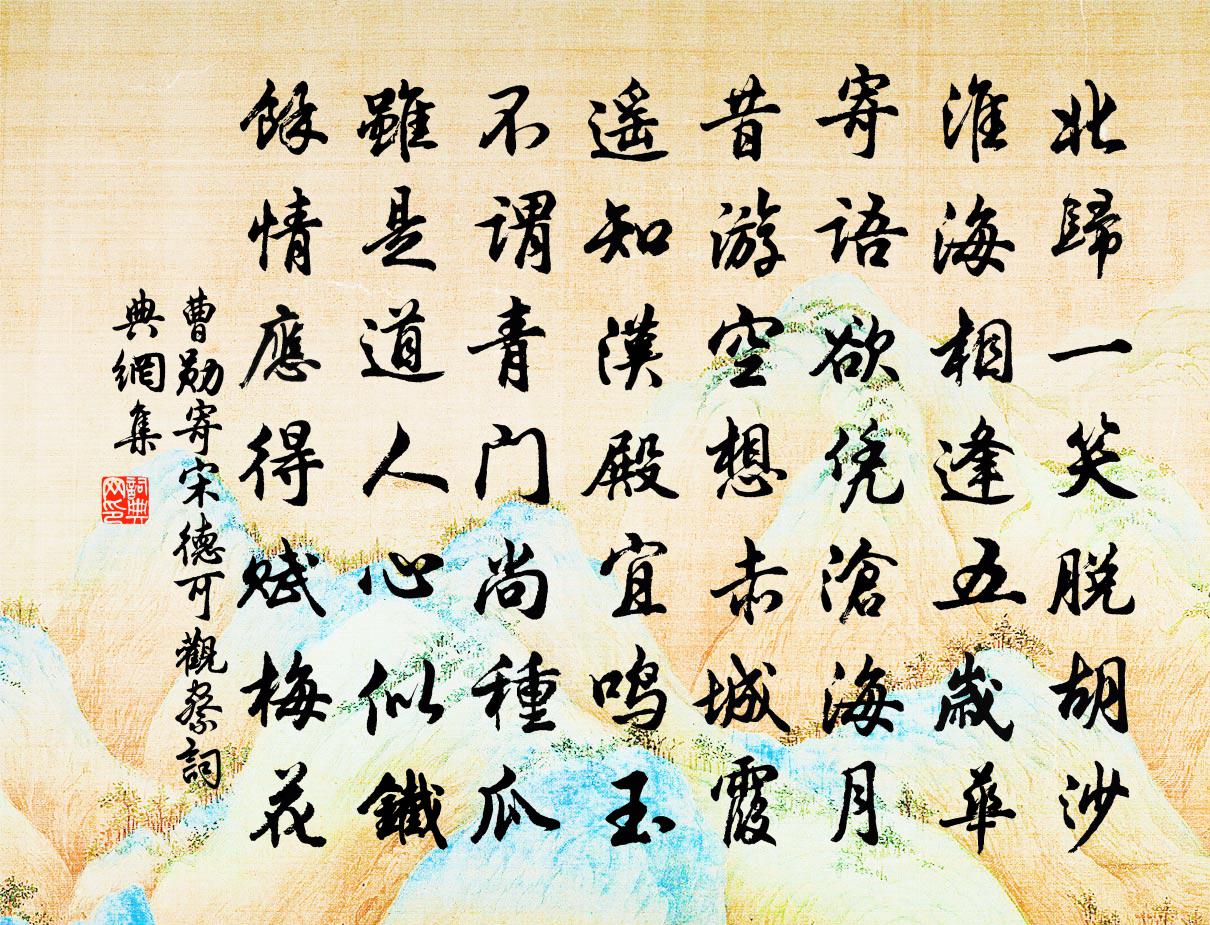 北歸一笑脫胡沙
淮海相逢五歲華
寄語欲凭滄海月
昔游空想赤城霞
遥知漢殿宜鳴玉
不謂青门尚種瓜
雖是道人心似鐵
餘情應得賦梅花
曹勛寄宋德可觀察詞
典網集
詞典
网印